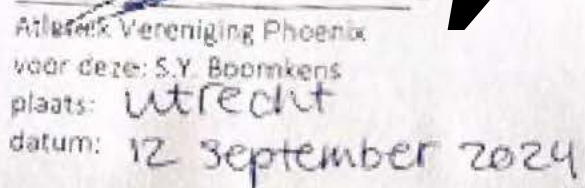 Atletiek Vereniging Phoenix
voor deze: S.Y. Boomkens
plaats: Utrecht
datum: 12 september 2024